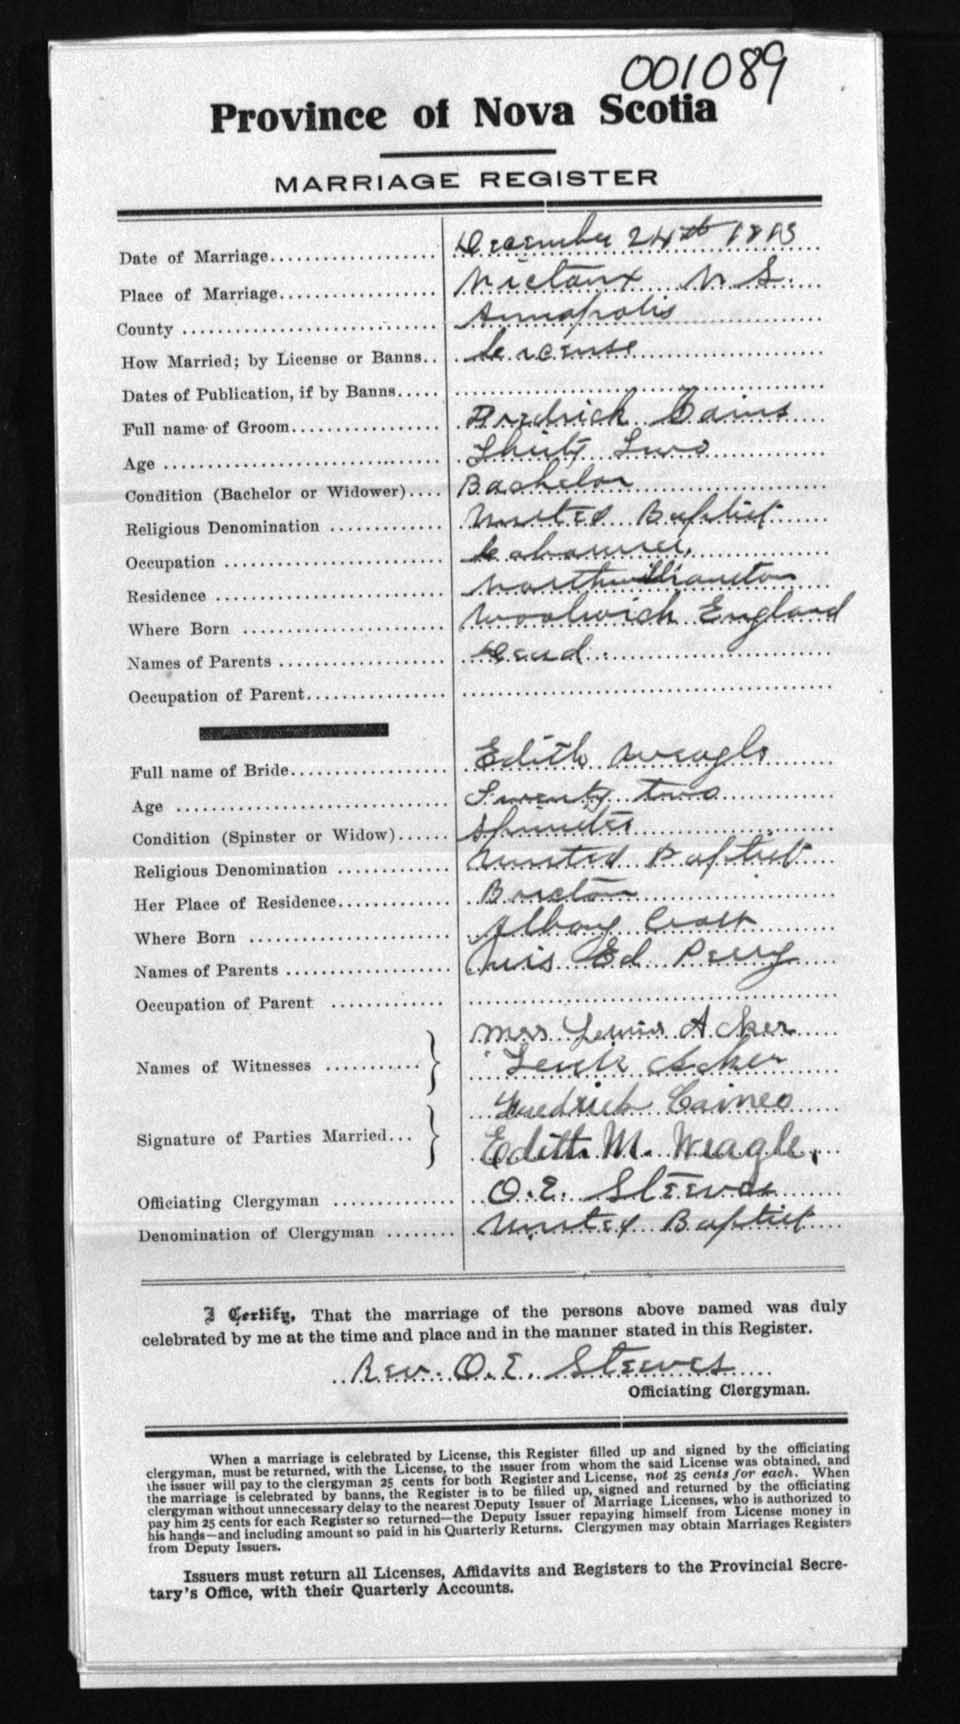 001089
Province of Nova Scotia
MARRIAGE REGISTER
Date of Marriage................... December 24th 1913
Place of Marriage.................. Nictaux N S.
County ............................ Annapolis
How Married; by License or Banns.. License
Dates of Publication, if by Banns.....
Full name of Groom................. Fredrick Cains
Age ............................... Thirty Two
Condition (Bachelor or Widower).... Bachelor
Religious Denomination ............. United Baptist
Occupation ......................... Labourer
Residence .......................... Northwilliamston
Where Born ........................ Woolwich England
Names of Parents ................... Dead.
Occupation of Parent................
Full name of Bride.................. Edith Weagle
Age ............................... Twenty two
Condition (Spinster or Widow)...... Spinster
Religious Denomination ............ United Baptist
Her Place of Residence............
Where Born ........................ Albany Cross
Names of Parents .................. Mrs Ed Perry
Occupation of Parent .............
Names of Witnesses ........... } Mrs Lewis Acker
Acker
Signature of Parties Married... } Fredrick Caines
Edith M. Weagle.
Officiating Clergyman ............. O. E. Steeves
Denomination of Clergyman ........ United Baptist
I Certify, That the marriage of the persons above named was duly
celebrated by me at the time and place and in the manner stated in this Register.
Rev. O. E. Steeves
Officiating Clergyman.
When a marriage is celebrated by License, this Register filled up and signed by the officiating
clergyman, must be returned, with the License, to the issuer from whom the said License was obtained, and
the issuer will pay to the clergyman 25 cents for both Register and License, not 25 cents for each. When
the marriage is celebrated by banns, the Register is to be filled up, signed and returned by the officiating
clergyman without unnecessary delay to the nearest Deputy Issuer of Marriage Licenses, who is authorized to
pay him 25 cents for each Register so returned—the Deputy Issuer repaying himself from License money in
his hands—and including amount so paid in his Quarterly Returns. Clergymen may obtain Marriages Registers
from Deputy Issuers.
Issuers must return all Licenses, Affidavits and Registers to the Provincial Secre-
tary's Office, with their Quarterly Accounts.